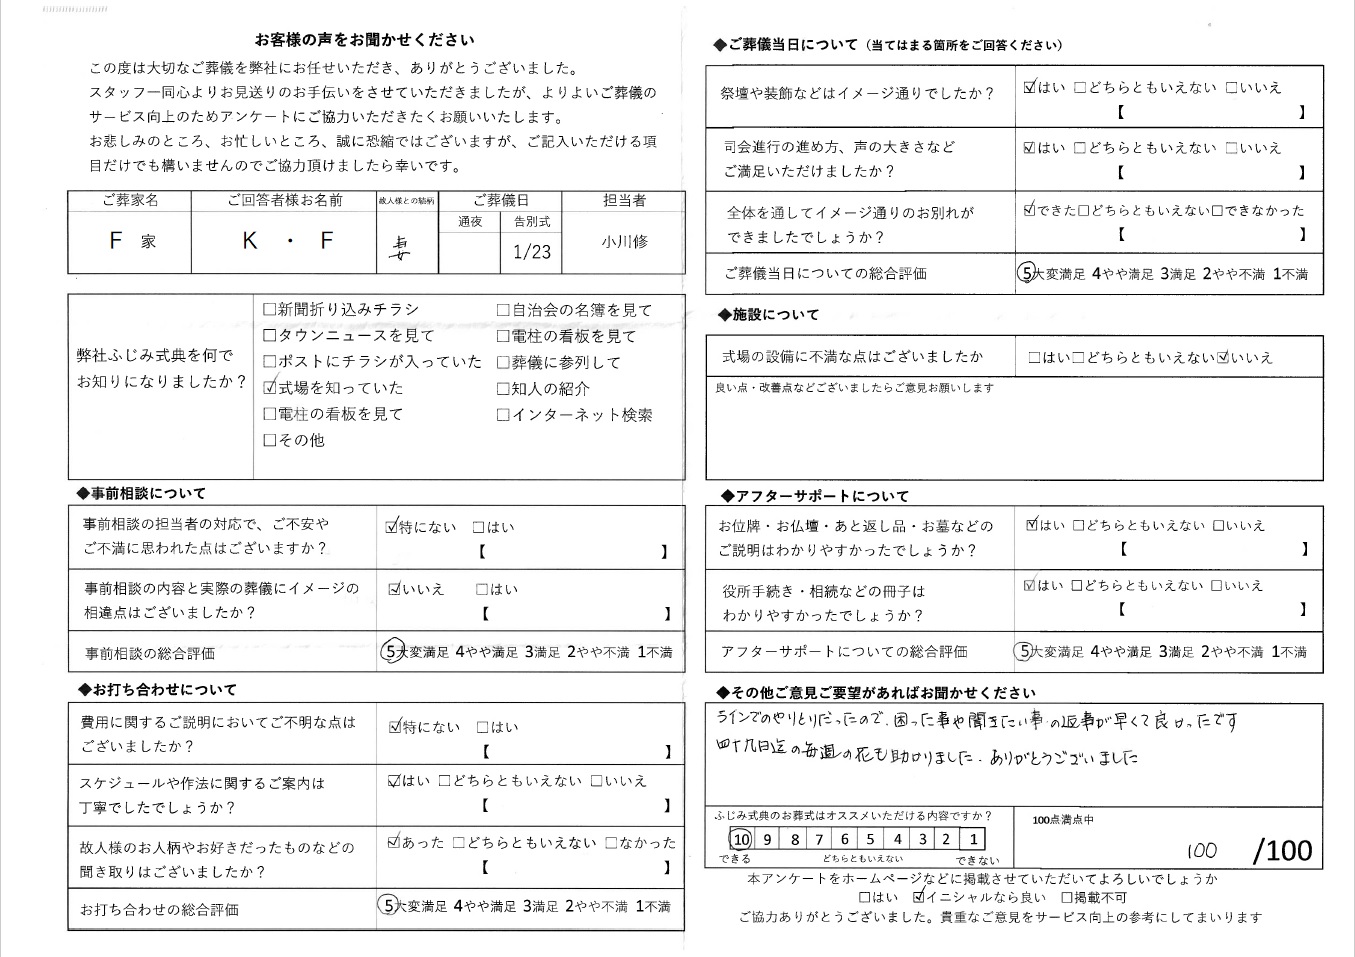 お客様の声をお聞かせください
この度は大切なご葬儀を弊社にお任せいただき、ありがとうございました。
スタッフ一同心よりお見送りのお手伝いをさせていただきましたが、よりよいご葬儀の
サービス向上のためアンケートにご協力いただきたくお願いいたします。
お悲しみのところ、お忙しいところ、誠に恐縮ではございますが、ご記入いただける項
目だけでも構いませんのでご協力頂けましたら幸いです。
ご葬家名 ご回答者様お名前 故人様との続柄 ご葬儀日 担当者
通夜 告別式
F 家 K ・ F 妻 1/23 小川修
弊社ふじみ式典を何で
お知りになりましたか?
☐新聞折り込みチラシ ☐自治会の名簿を見て
☐タウンニュースを見て ☐電柱の看板を見て
☐ポストにチラシが入っていた ☐葬儀に参列して
☑式場を知っていた ☐知人の紹介
☐電柱の看板を見て ☐インターネット検索
☐その他
◆事前相談について
事前相談の担当者の対応で、ご不安や
ご不満に思われた点はございますか?
☑特にない ☐はい
【 】
事前相談の内容と実際の葬儀にイメージの
相違点はございましたか?
☑いいえ ☐はい
【 】
事前相談の総合評価 5大変満足 4やや満足 3満足 2やや不満 1不満
◆お打ち合わせについて
費用に関するご説明においてご不明な点は
ございましたか?
☑特にない ☐はい
【 】
スケジュールや作法に関するご案内は
丁寧でしたでしょうか?
☑はい ☐どちらともいえない ☐いいえ
【 】
故人様のお人柄やお好きだったものなどの
聞き取りはございましたか?
☑あった ☐どちらともいえない ☐なかった
【 】
お打ち合わせの総合評価 5大変満足 4やや満足 3満足 2やや不満 1不満
◆ご葬儀当日について(当てはまる箇所をご回答ください)
祭壇や装飾などはイメージ通りでしたか?
☑はい ☐どちらともいえない ☐いいえ
【 】
司会進行の進め方、声の大きさなど
ご満足いただけましたか?
☑はい ☐どちらともいえない ☐いいえ
【 】
全体を通してイメージ通りのお別れが
できましたでしょうか?
☑できた☐どちらともいえない☐できなかった
【 】
ご葬儀当日についての総合評価 5大変満足 4やや満足 3満足 2やや不満 1不満
◆施設について
式場の設備に不満な点はございましたか ☐はい☐どちらともいえない☑いいえ
良い点・改善点などございましたらご意見お願いします
◆アフターサポートについて
お位牌・お仏壇・あと返し品・お墓などの
ご説明はわかりやすかったでしょうか?
☑はい ☐どちらともいえない ☐いいえ
【 】
役所手続き・相続などの冊子は
わかりやすかったでしょうか?
☑はい ☐どちらともいえない ☐いいえ
【 】
アフターサポートについての総合評価 5大変満足 4やや満足 3満足 2やや不満 1不満
◆その他ご意見ご要望があればお聞かせください
ラインでのやりとりだったので、困った事や聞きたい事の返事が早くて良かったです
四十九日迄の毎週の花も助かりました。ありがとうございました
ふじみ式典のお葬式はオススメいただける内容ですか?
10 9 8 7 6 5 4 3 2 1
できる どちらともいえない できない
100点満点中
100 /100
本アンケートをホームページなどに掲載させていただいてよろしいでしょうか
☐はい ☑イニシャルなら良い ☐掲載不可
ご協力ありがとうございました。貴重なご意見をサービス向上の参考にしてまいります